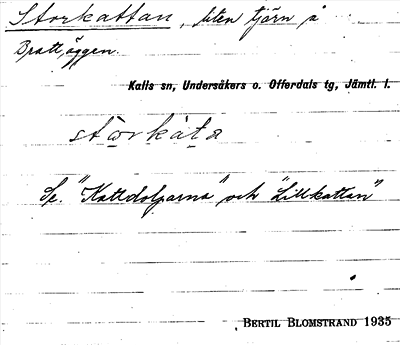 Storkattan, liten tjärn å
Bratteggen.
Kalls sn, Undersåkers o. Offerdals tg, Jämtl. l.
storkata
Se. "Kattdolparna" och "Lillkattan"
BERTIL BLOMSTRAND 1935